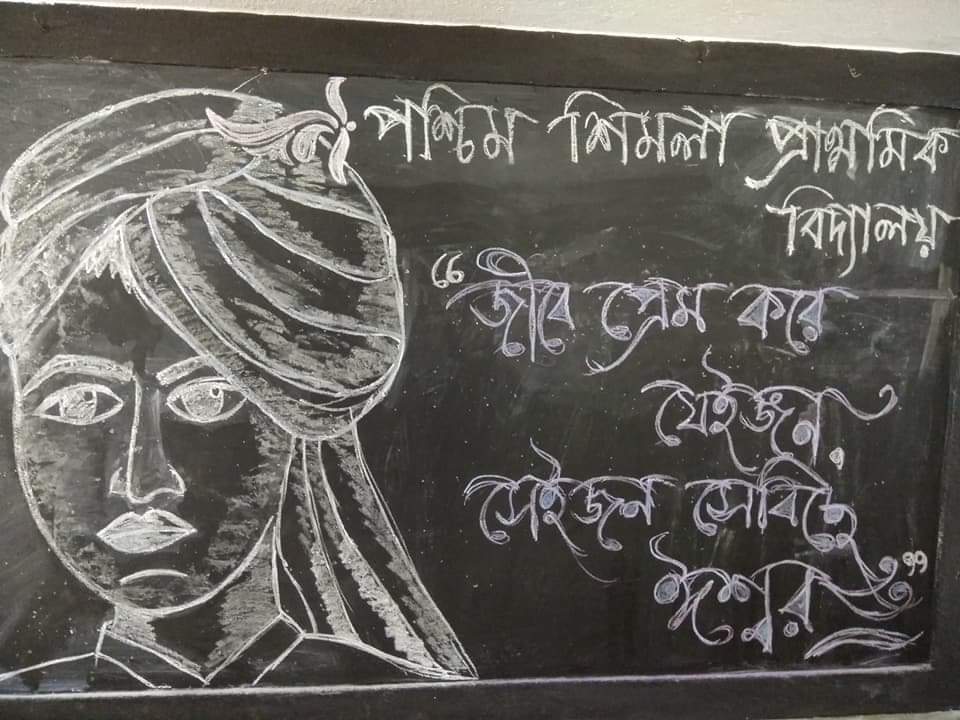 পশ্চিম শিমলা প্রাথমিক
বিদ্যালয়
“জীবে প্রেম করে
যেইজন,
সেইজন সেবিছে
ঈশ্বর”